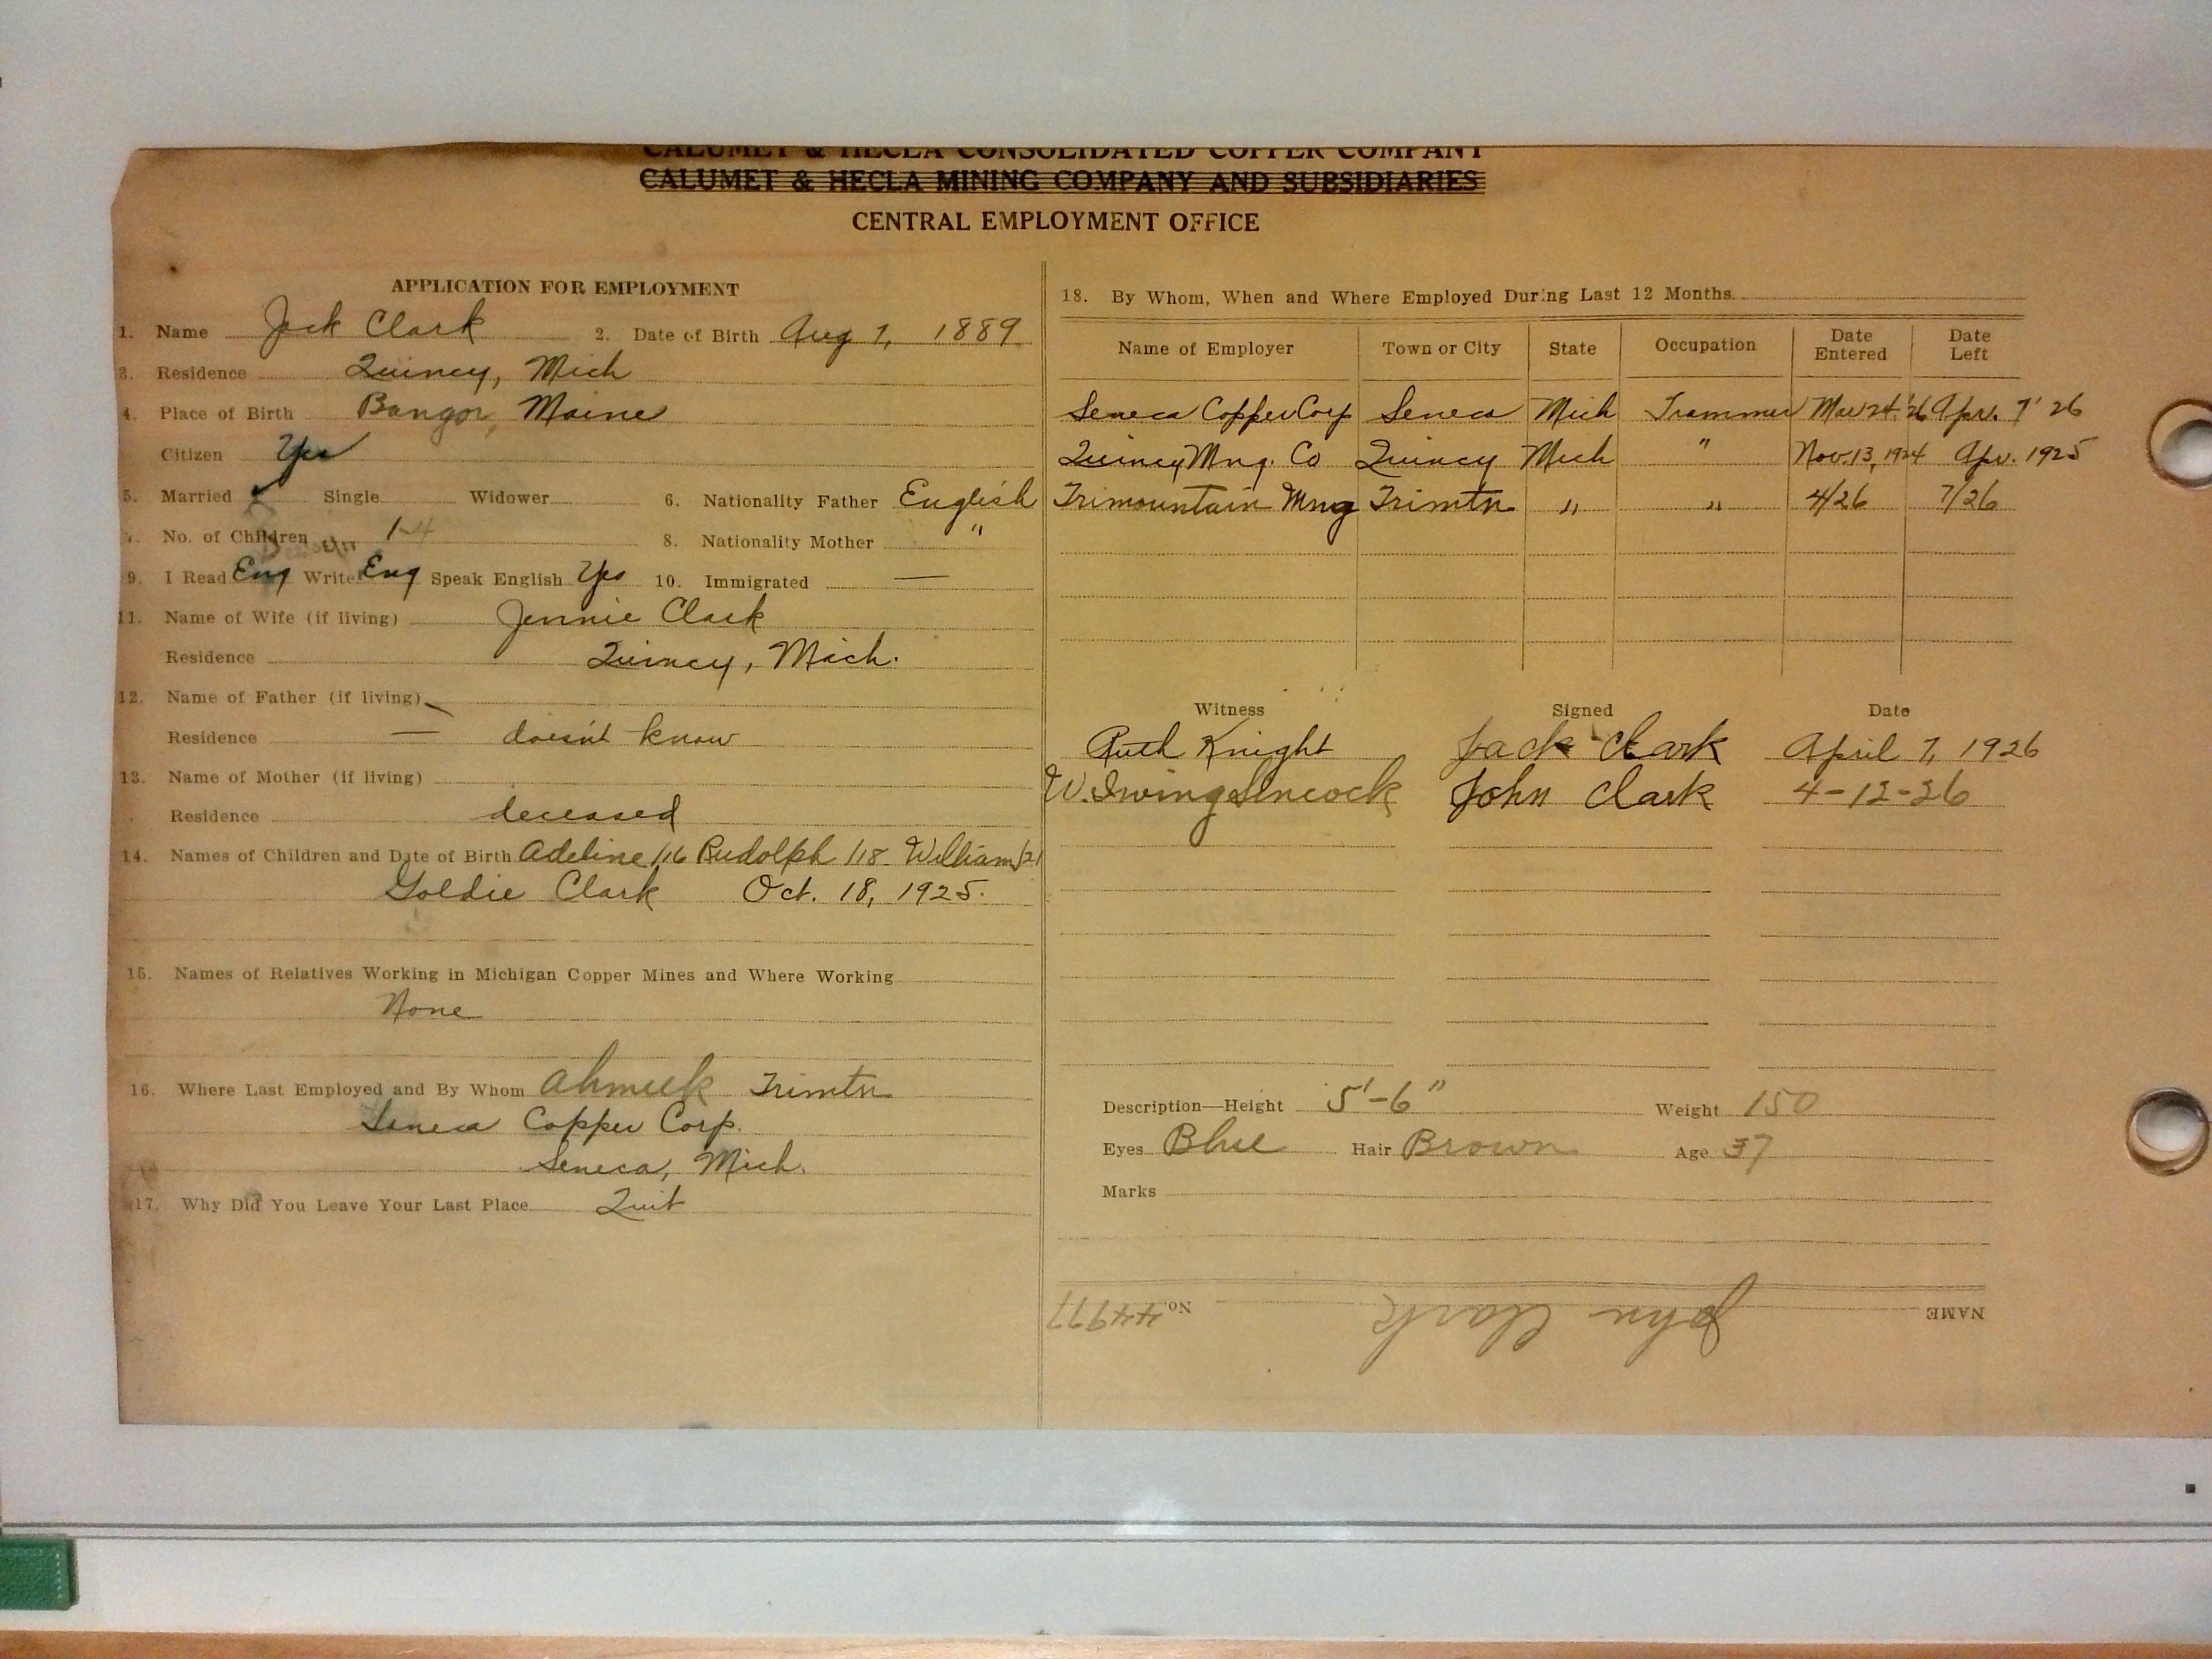 CALUMET & HECLA CONSOLIDATED COPPER COMPANY
CALUMET & HECLA MINING COMPANY AND SUBSIDIARIES
CENTRAL EMPLOYMENT OFFICE
APPLICATION FOR EMPLOYMENT
1. Name Jack Clark 2. Date of Birth Aug 7, 1889
3. Residence Quincy, Mich
4. Place of Birth Bangor, Maine
Citizen Yes
5. Married ✓ Single Widower 6. Nationality Father English
7. No. of Children 1-4 8. Nationality Mother "
9. I Read Eng Write Eng Speak English Yes 10. Immigrated —
11. Name of Wife (if living) Jennie Clark
Residence Quincy, Mich.
12. Name of Father (if living)
Residence — doesn't know
13. Name of Mother (if living)
Residence deceased
14. Names of Children and Date of Birth Adeline /16 Rudolph /18 William /21
Goldie Clark Oct. 18, 1925.
15. Names of Relatives Working in Michigan Copper Mines and Where Working
None
16. Where Last Employed and By Whom Ahmeek Trimtn
Seneca Copper Corp.
Seneca, Mich.
17. Why Did You Leave Your Last Place Quit
18. By Whom, When and Where Employed During Last 12 Months
Name of Employer Town or City State Occupation Date Entered Date Left
Seneca Copper Corp Seneca Mich Trammer Mar 24, '26 Apr. 7' 26
Quincy Mng. Co Quincy Mich " Nov. 13, 1924 Apr. 1925
Trimountain Mng Trimtn " " 4/26 7/26
Witness Signed Date
Ruth Knight Jack Clark April 7, 1926
W. Irving Sincock John Clark 4-12-26
Description—Height 5'-6" Weight 150
Eyes Blue Hair Brown Age 37
Marks
NAME John Clark No. 44977